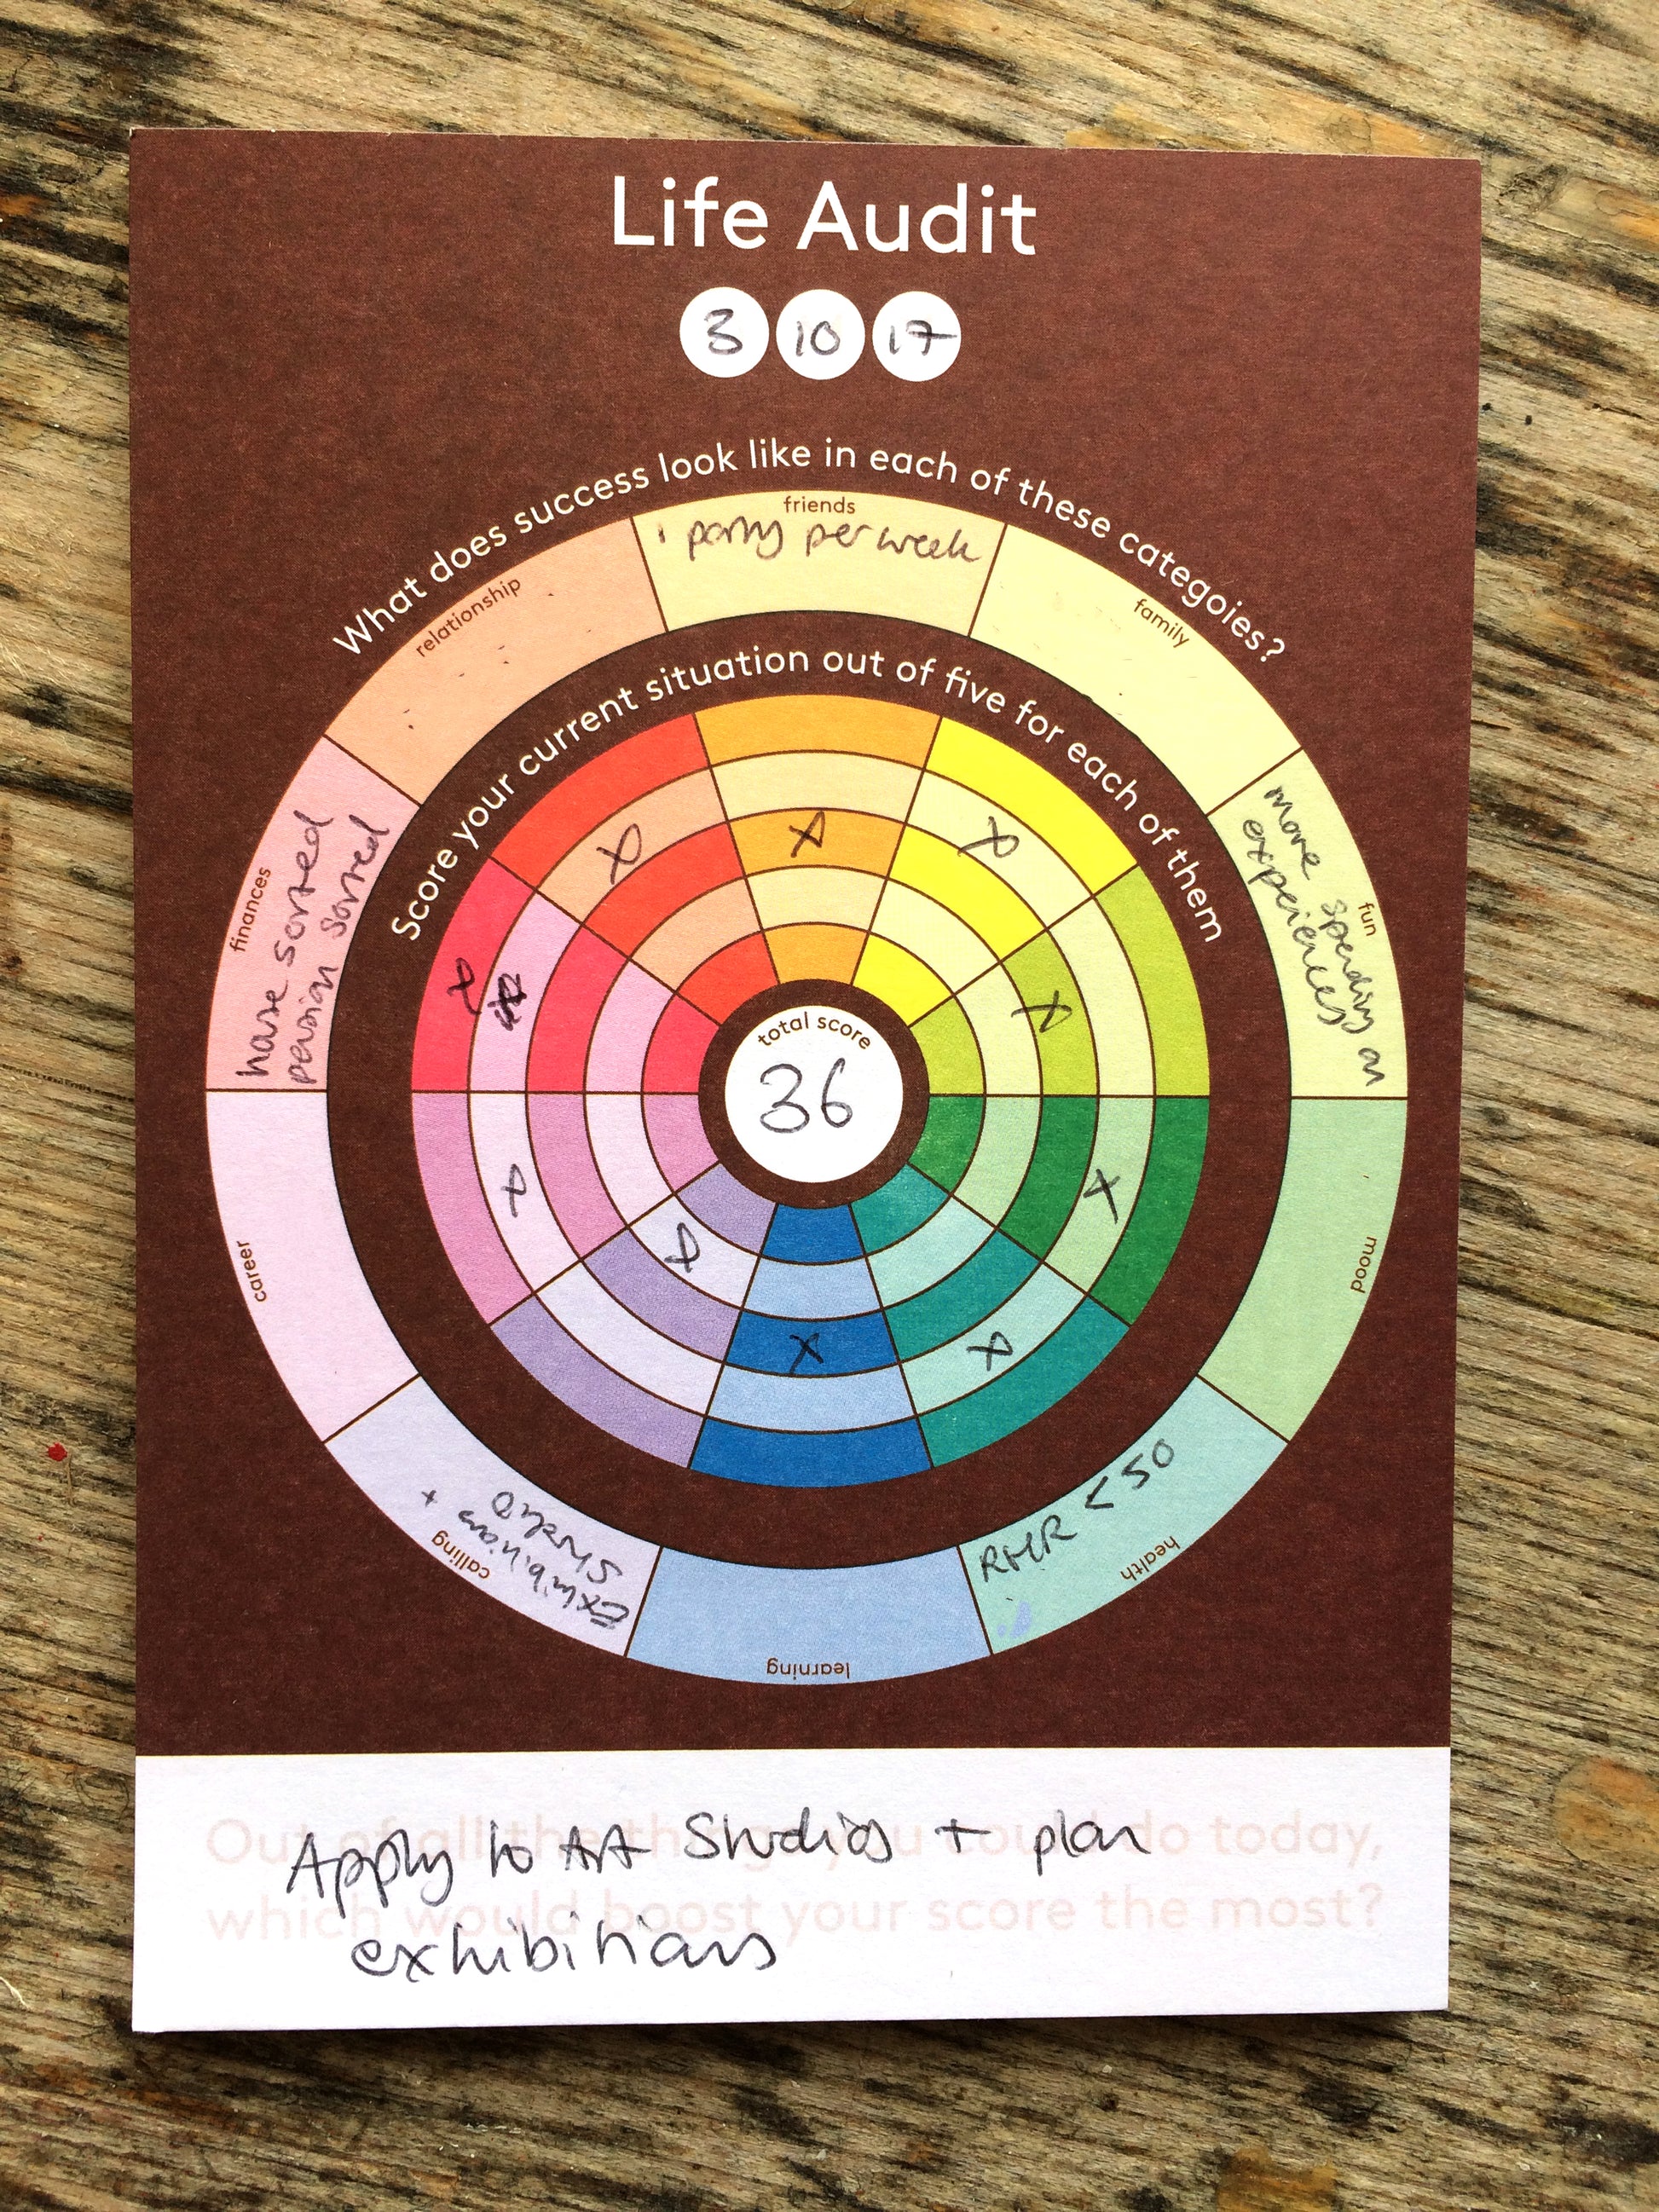 Life Audit
3 10 17
What does success look like in each of these categoies?
friends
1 party per week
family
fun
more spending on
experiences
mood
health
RHR < 50
learning
calling
Exhibitions +
Studio
career
finances
house sorted
pension sorted
relationship
Score your current situation out of five for each of them
x
x
x
x
x
x
x
x
x
x
total score
36
Out of all the things you could do today,
which would boost your score the most?
Apply to Art Studios + plan
exhibitions